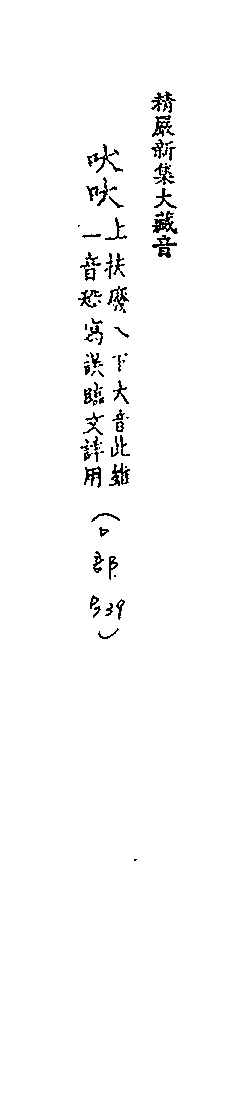 精嚴新集大藏音
吠吠
上扶廢乀下大音此雖
一音恐寫誤臨文詳用
(口部P39)